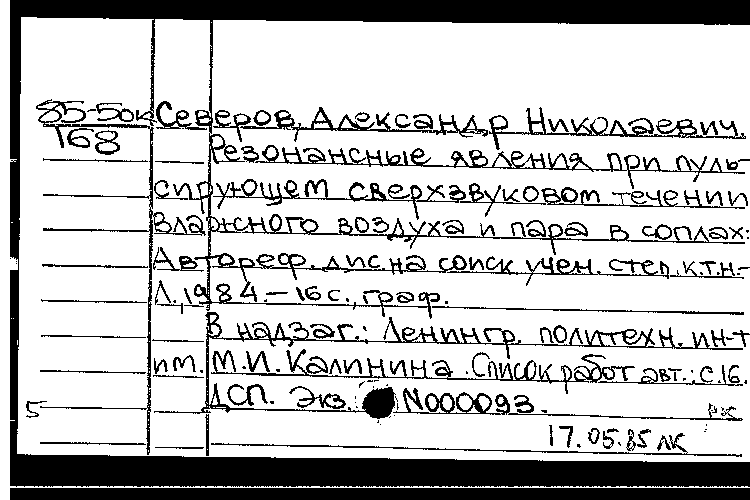 85-5ок Северов, Александр Николаевич.
168 Резонансные явления при пуль-
сирующем сверхзвуковом течении
влажного воздуха и пара в соплах:
Автореф. дис. на соиск. учен. степ. к.т.н.-
Л., 1984.-16 с., граф.
В надзаг.: Ленингр. политехн. ин-т
им. М.И. Калинина. Список работ авт.: с.16.
ДСП. Экз. N000093.
5
17.05.85 ЛК